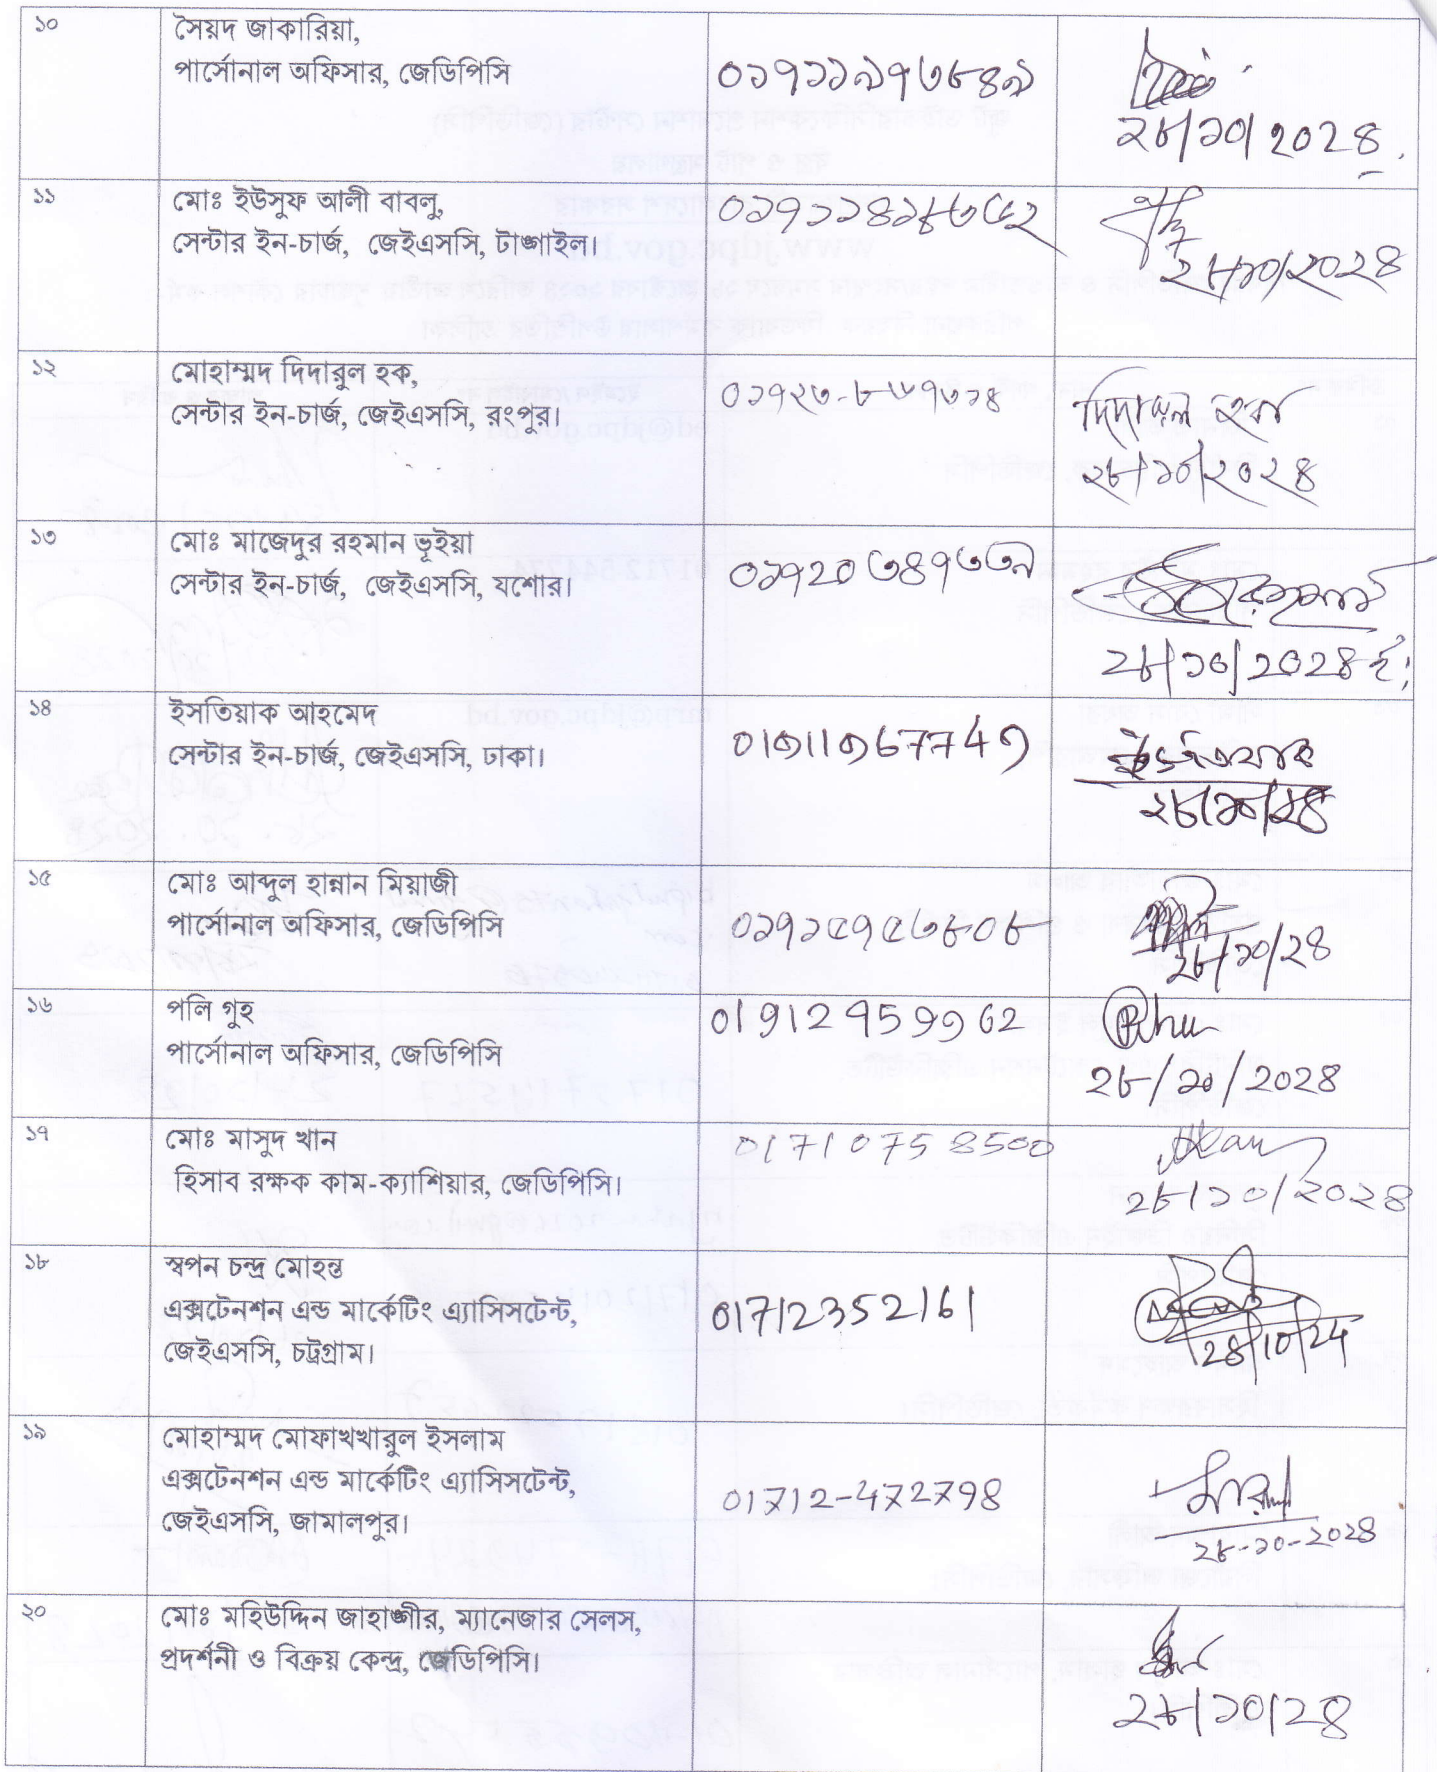 ১০
সৈয়দ জাকারিয়া,
পার্সোনাল অফিসার, জেডিপিসি
০১৭১১৯৭৬৮৪৯
২৮/১০/২০২৪
১১
মোঃ ইউসুফ আলী বাবলু,
সেন্টার ইন-চার্জ, জেইএসসি, টাঙ্গাইল।
২৮/১০/২০২৪
১২
মোহাম্মদ দিদারুল হক,
সেন্টার ইন-চার্জ, জেইএসসি, রংপুর।
দিদারুল হক
২৮/১০/২০২৪
১৩
মোঃ মাজেদুর রহমান ভূইয়া
সেন্টার ইন-চার্জ, জেইএসসি, যশোর।
২৮/১০/২০২৪
১৪
ইসতিয়াক আহমেদ
সেন্টার ইন-চার্জ, জেইএসসি, ঢাকা।
২৮/১০/২৪
১৫
মোঃ আব্দুল হান্নান মিয়াজী
পার্সোনাল অফিসার, জেডিপিসি
০১৭১৫৭৫৬৮০৮
২৮/১০/২৪
১৬
পলি গুহ
পার্সোনাল অফিসার, জেডিপিসি
01912959962
২৮/১০/২০২৪
১৭
মোঃ মাসুদ খান
হিসাব রক্ষক কাম-ক্যাশিয়ার, জেডিপিসি।
01710758500
২৮/১০/২০২৪
১৮
স্বপন চন্দ্র মোহন্ত
এক্সটেনশন এন্ড মার্কেটিং এ্যাসিসটেন্ট,
জেইএসসি, চট্রগ্রাম।
01712352161
28/10/24
১৯
মোহাম্মদ মোফাখখারুল ইসলাম
এক্সটেনশন এন্ড মার্কেটিং এ্যাসিসটেন্ট,
জেইএসসি, জামালপুর।
01712-472798
২৮-১০-২০২৪
২০
মোঃ মহিউদ্দিন জাহাঙ্গীর, ম্যানেজার সেলস,
প্রদর্শনী ও বিক্রয় কেন্দ্র, জেডিপিসি।
২৮/১০/২৪